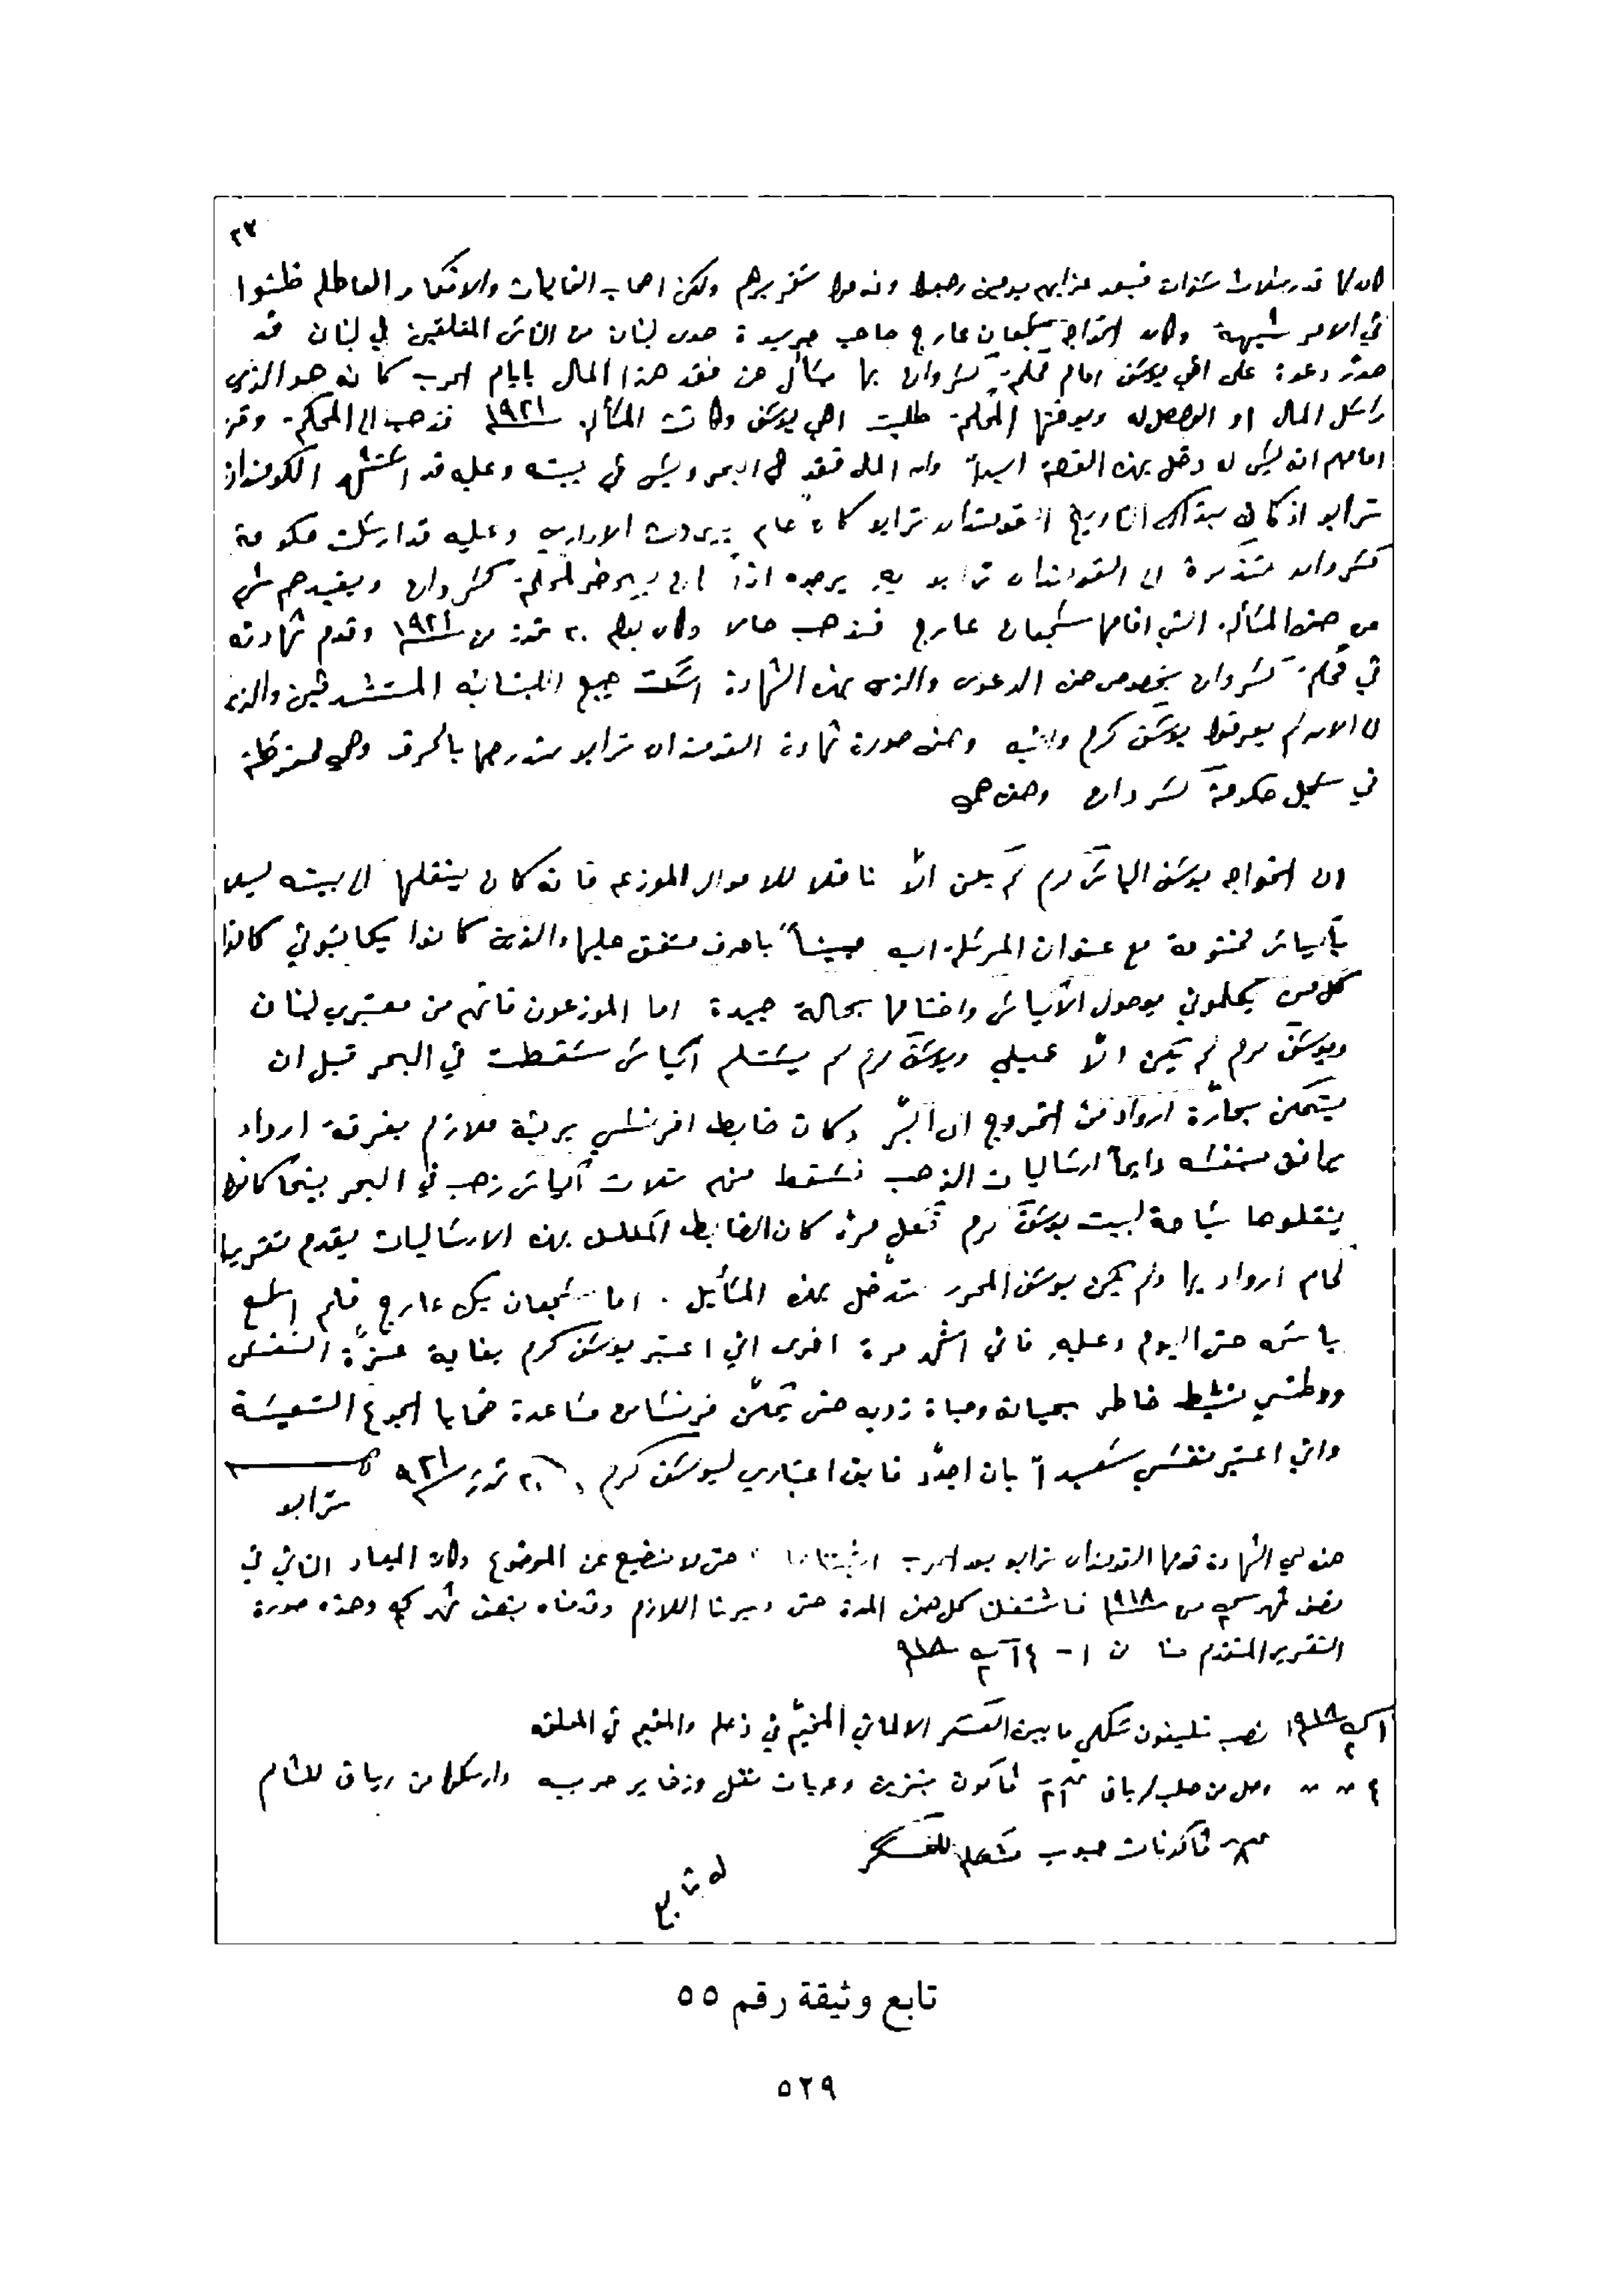 ٢٧
قدر بثلاث سنوات فبعد عذابهم يومين رجعوا وقدموا تقريرهم ولكن اصحاب الغايات والافكار العاطله ظنوا
في الامر شبهة وكان الخواجه سجعان عارج صاحب جريدة صدى لبنان من الناس المقلقين في لبنان قد
دعوة على اخي يوسف امام محكمة كسروان بها يسأل عن فقد هذا المال بايام الحرب كانه هو الذي
راسل المال او الموصل له وبوقتها المحكمة طلبت اخي يوسف وكانت المسألة ١٩٢١ فذهب الى المحكمة وقرر
امامهم انه ليس له دخل بهذه القصة ابداً وان المال فقد في البحر وليس في بيته وعليه قد استشهد الكومندان
ترابو اذ كان بذاك التاريخ القومندان ترابو كان حاكم بيروت الاداري وعليه قد ارسلت حكومة
كسروان تذكرة الى القومندان ترابو به يرجوه اذا يحضر لمحكمة كسروان ويفيدهم شي
عن هذه المسألة التي اقامها سجعان عارج فذهب حالا وكان بيوم ٢٠ تموز من ١٩٢١ وقدم شهادته
في محكمة كسروان بخصوص هذه الدعوى والذي بهذه الشهادة اسكت جميع اللبنانيه المتشدقين والذي
الى الان لم يعرفوا يوسف كرم وهذه صورة شهادة القومندان ترابو مندرجها بالحرف وهي محفوظة
في سجل حكومة كسروان وهذه هي
ان الخواجه يوسف الياس كرم لم يكن الاّ ناقلا للاموال الموزعه فانه كان ينقلها الى بيته ليلا
بأكياس مختومة مع عنوان المرسلة اليه مبيناً باحرف متفق عليها والذين كانوا يكاتبوني كانوا
كل مرة يعلموني بوصول الأكياس واختامها بحالة جيدة اما الموزعون فانهم من معتبري لبنان
ويوسف كرم لم يكن الاّ عميلي ويوسف كرم لم يستلم اكياس سقطت في البحر قبل ان
يتمكن بحارة ارواد من الخروج الى البرّ وكان ضابط افرنسي برتبة ملازم بفرقة ارواد
يرافق بنفسه دايماً ارساليات الذهب فسقط منهم ثلاث اكياس ذهب في البحر بينما كانوا
ينقلوها سباحة لبيت يوسف كرم فكل مرة كان الضابط المكلف بهذه الارساليات يقدم تقريرا
لحاكم ارواد بها ولم يكن يوسف المحرر يتدخل بهذه المسايل . اما سجعان بك عارج فلم اسمع
باسمه حتى اليوم وعليه فاني اشهد مرة اخرى اني اعتبر يوسف كرم بغاية عزة النفس
ووطني نشيط خاطر بحياته وحياة ذويه حتى تمكن فرنسا من مساعدة ضحايا الجوع التعيسة
واني اعتبر نفسي سعيداً بان اجدّد فايق اعتباري ليوسف كرم . ٢٠ تموز ٩٢١
ترابو
هذه هي الشهادة قدمها القومندان ترابو بعد الحرب اثبتناها حتى لا نضيع عن الموضوع وكان الميعاد الثاني في
نصف شهر من ١٩١٨ فاشتغلت كل هذه المدة حتى دبرنا اللازم وقدمناه بنصف شهر وهذه صورة
التقرير المتقدم منا من ١ - ٤ آب ٩١٨
١ آب ١٩١٨ نصب تليفون سلكي ما بين العسكر الالماني المخيّم في زحله والمقيم في المعلقه
٤ " " وصل من حلب لرياق فاكون بنزين وعربات نقل وذخاير حربيه وارسلوا من رياق للشام
فاكونات حبوب للعسكر
تابع وثيقة رقم ٥٥
٥٢٩